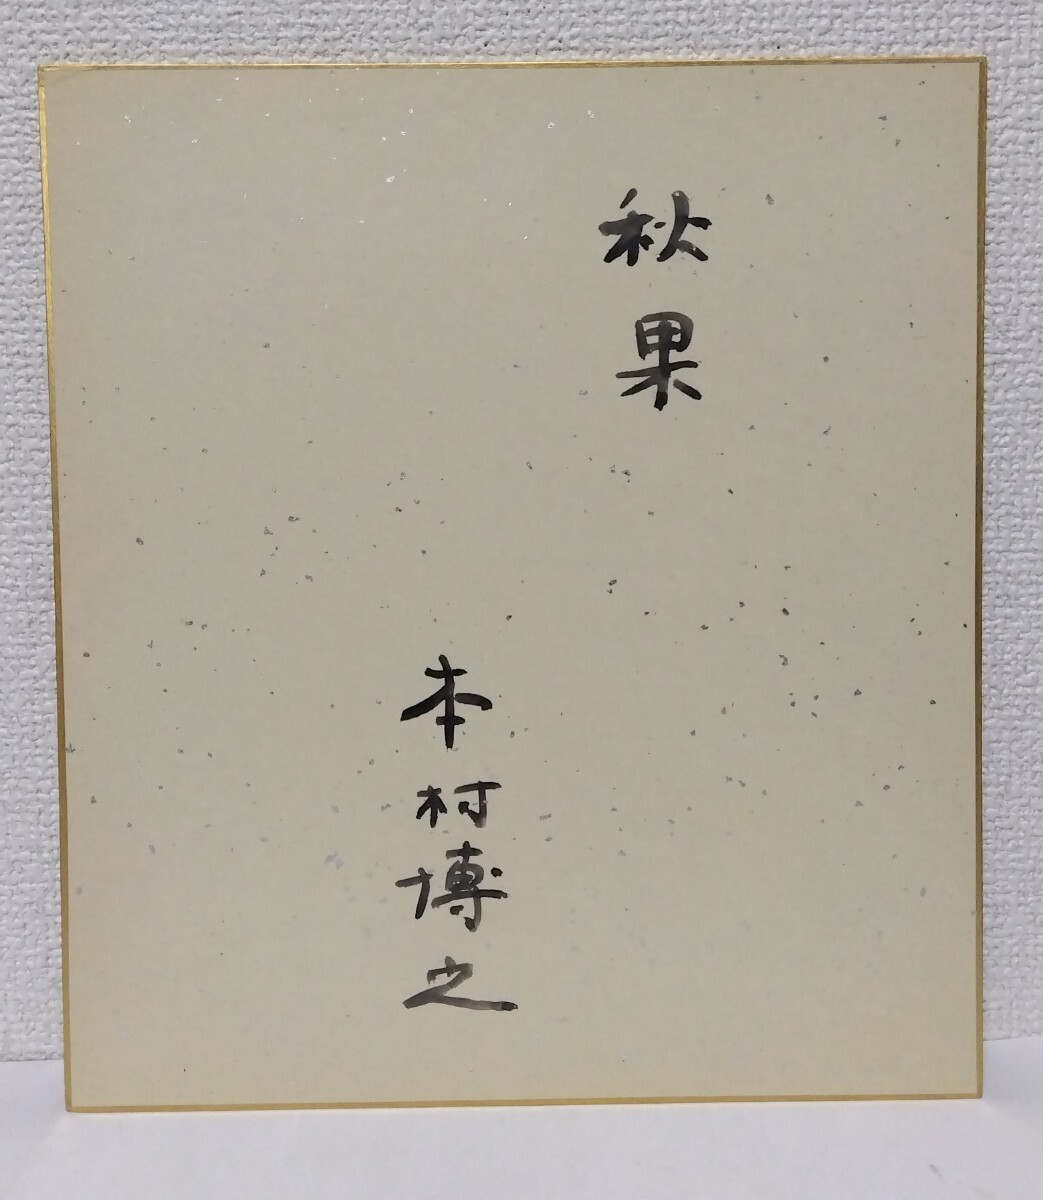 秋果
本村博之